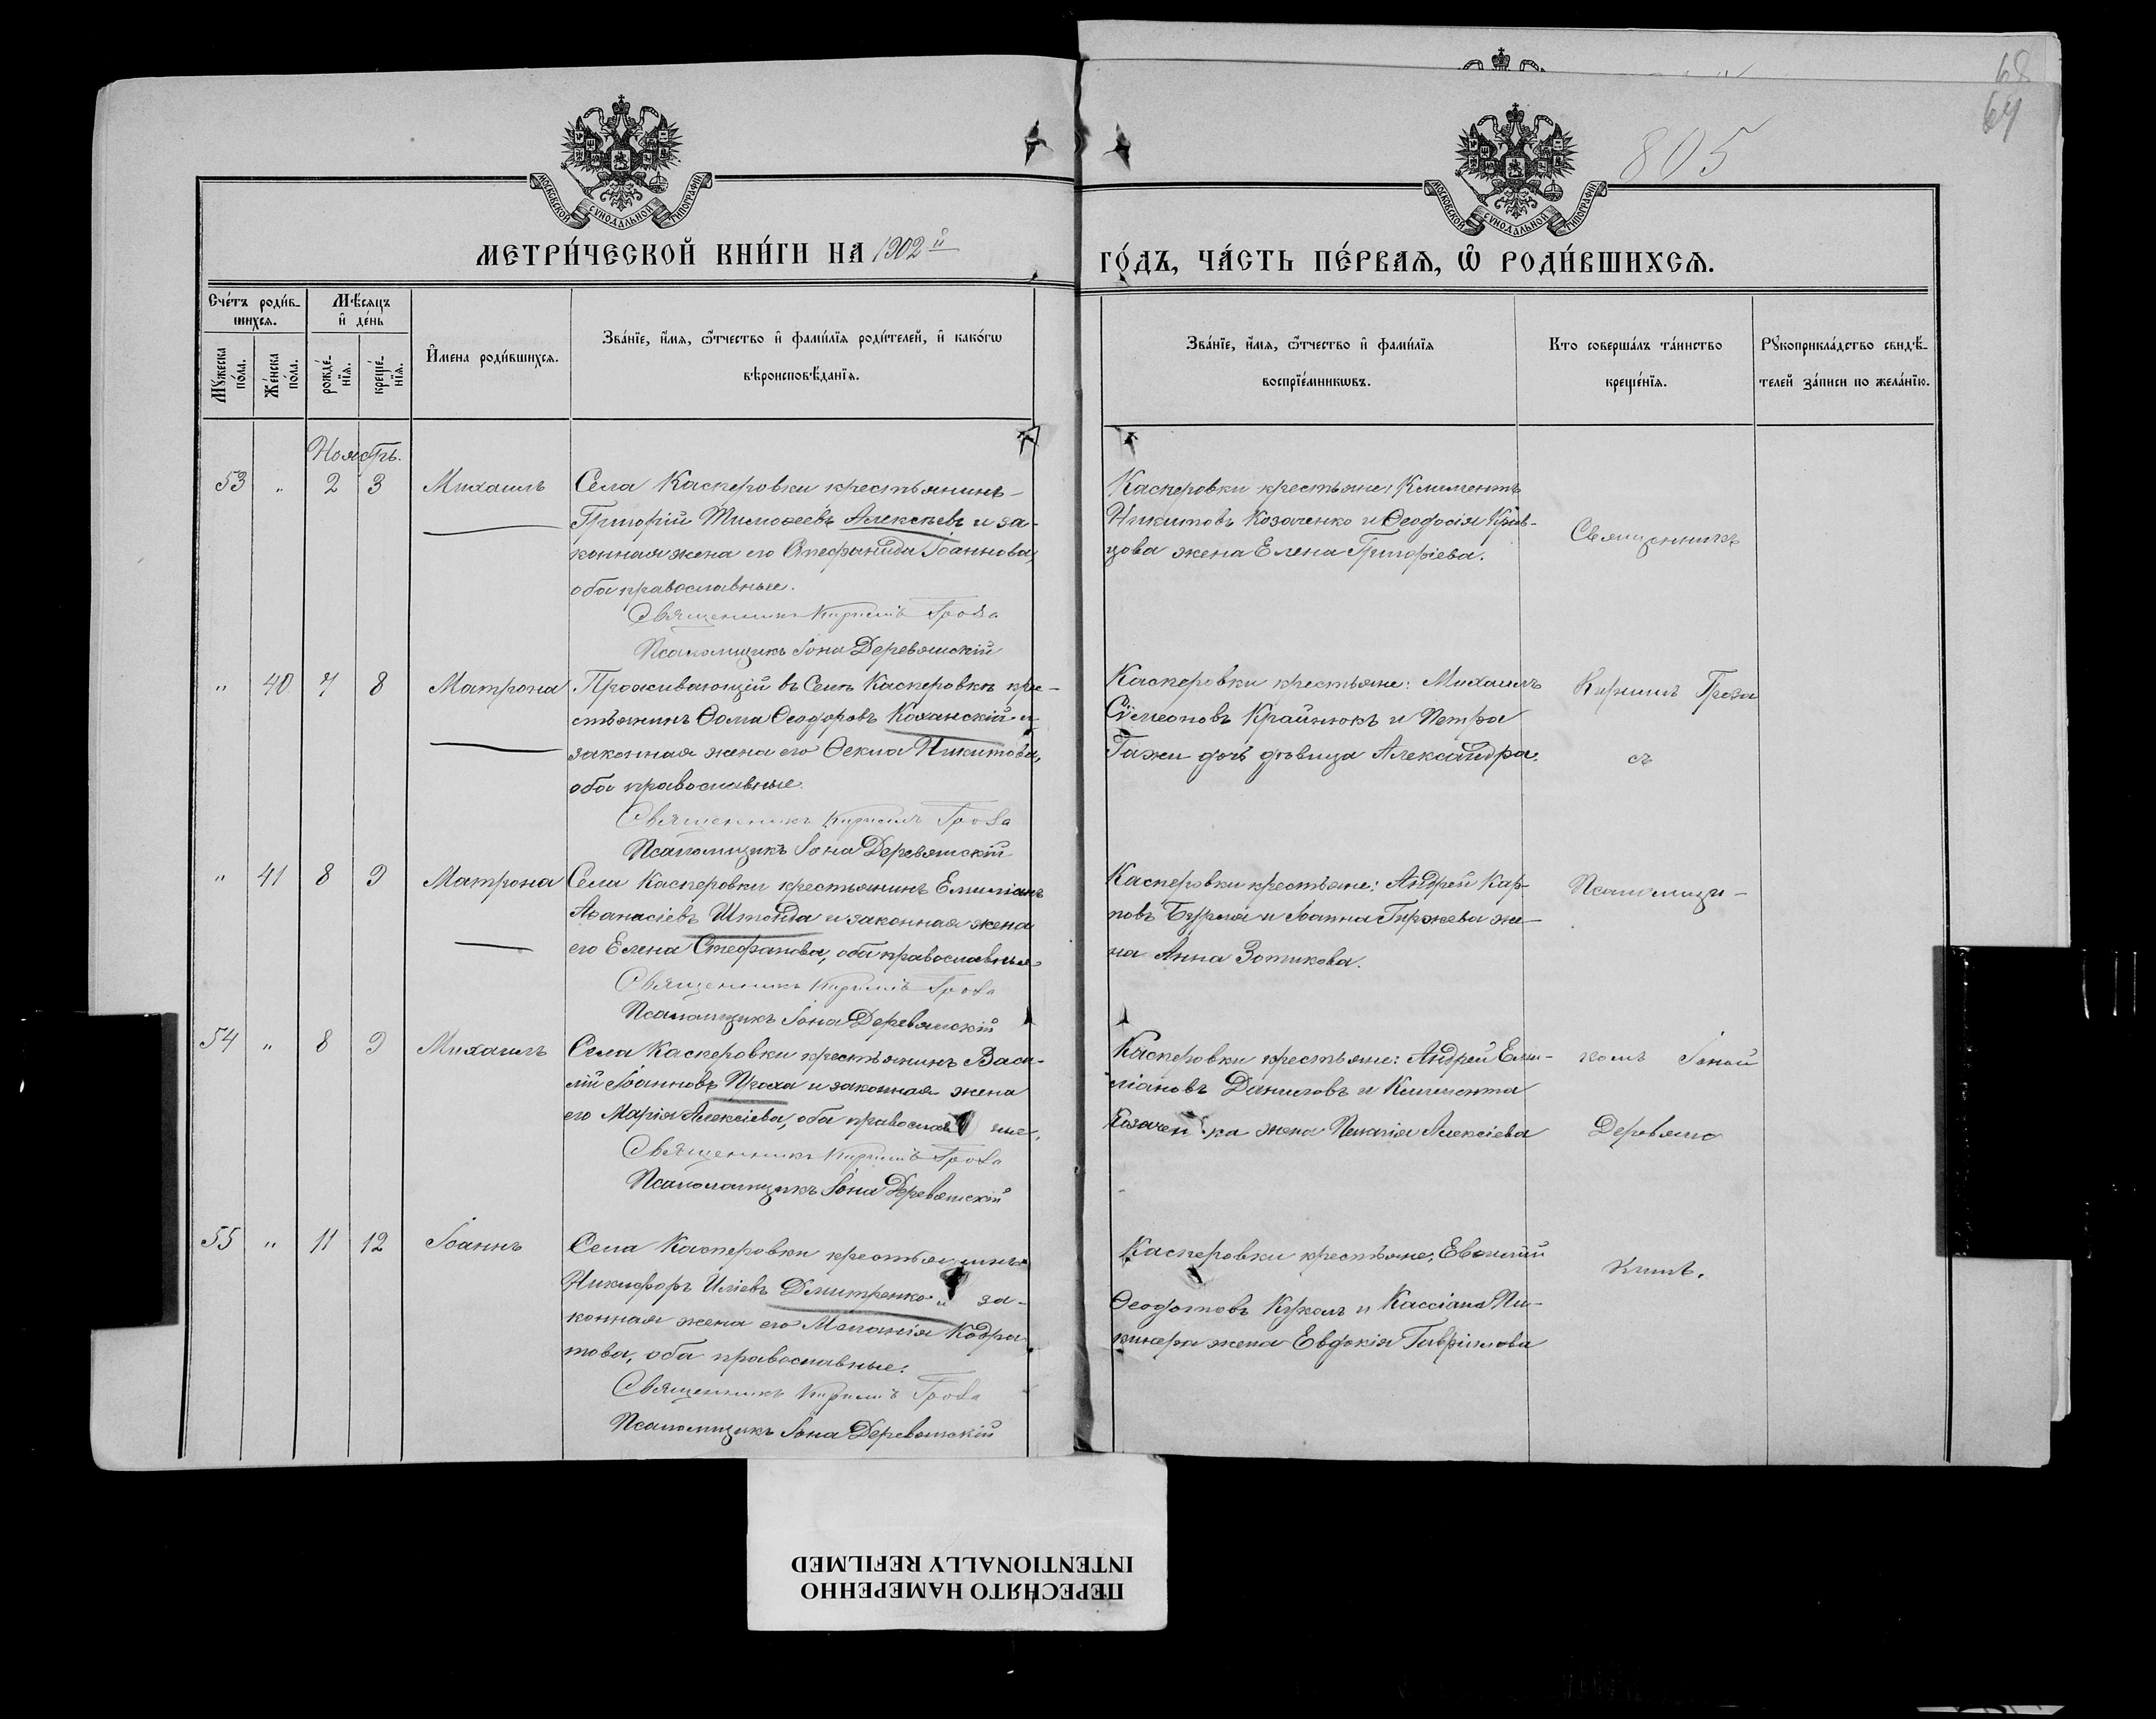 68
64
805
МОСКОВСКОЙ СѴНОДАЛЬНОЙ ТИПОГРАФІИ
МОСКОВСКОЙ СѴНОДАЛЬНОЙ ТИПОГРАФІИ
МЕТРИ́ЧЕСКОЙ КНИ́ГИ НА 1902й
ГО́ДЪ, ЧА́СТЬ ПЕ́РВАѦ, Ѡ҆ РОДИ́ВШИХСѦ.
Сче́тъ роди́в-
шихсѧ.
Мѣ́сѧцъ
и҆ де́нь
Мꙋ́жеска
по́ла.
Же́нска
по́ла.
рожде́-
нїѧ.
креще́-
нїѧ.
И҆́мена роди́вшихсѧ.
Зва́нїе, и҆́мѧ, ѻ҆́тчество и҆ фами́лїѧ роди́телей, и҆ како́гѡ
вѣроисповѣ́данїѧ.
Зва́нїе, и҆́мѧ, ѻ҆́тчество и҆ фами́лїѧ
воспрїе́мникѡвъ.
Кто соверша́лъ та́инство
креще́нїѧ.
Рꙋкоприкла́дство свидѣ́-
телей за́писи по жела́нїю.
Ноябрь.
53 " 2 3 Михаилъ
Села Касперовки крестьянинъ
Григорій Тимоѳеевъ Алексѣевъ и за-
конная жена его Стефанида Іоаннова,
оба православные.
Священникъ Кириллъ Гроза
Псаломщикъ Іона Деревянскій
Касперовки крестьяне: Климентъ
Никитовъ Козаченко и Ѳеодосія Крив-
цова жена Елена Григоріева.
Священникъ
" 40 7 8 Матрона
Проживающій въ Селѣ Касперовкѣ кре-
стьянинъ Ѳома Ѳеодоровъ Коханскій и
законная жена его Ѳекла Никитова,
оба православные.
Священникъ Кириллъ Гроза
Псаломщикъ Іона Деревянскій
Касперовки крестьяне: Михаилъ
Сѵмеоновъ Крайнюкъ и Петра
Гажи дочь дѣвица Александра.
Кириллъ Гроза
съ
" 41 8 9 Матрона
Села Касперовки крестьянинъ Емиліанъ
Аѳанасіевъ Штонда и законная жена
его Елена Стефанова, оба православные
Священникъ Кириллъ Гроза
Псаломщикъ Іона Деревянскій
Касперовки крестьяне: Андрей Кар-
повъ Бурла и Іоанна Гиржева же-
на Анна Зотикова.
Псаломщи-
54 " 8 9 Михаилъ
Села Касперовки крестьянинъ Васи-
лій Іоанновъ Плаха и законная жена
его Марія Алексіева, оба православ ные.
Священникъ Кириллъ Гроза
Псаломщикъ Іона Деревянскій
Касперовки крестьяне: Андрей Еми-
ліановъ Даниловъ и Климента
Козачен ка жена Пелагія Алексіева
комъ Іоной
Деревянс
55 " 11 12 Іоаннъ
Села Касперовки крестьянинъ
Никифоръ Иліевъ Дмитренко и за-
конная жена его Меланія Кодра
това, оба православные.
Священникъ Кириллъ Гроза
Псаломщикъ Іона Деревянскій
Касперовки крестьяне: Евѳимій
Ѳеодотовъ Кукалъ и Кассіана Пи-
кинера жена Евдокія Гавріилова
кимъ.
ПЕРЕСНЯТО НАМЕРЕННО
INTENTIONALLY REFILMED